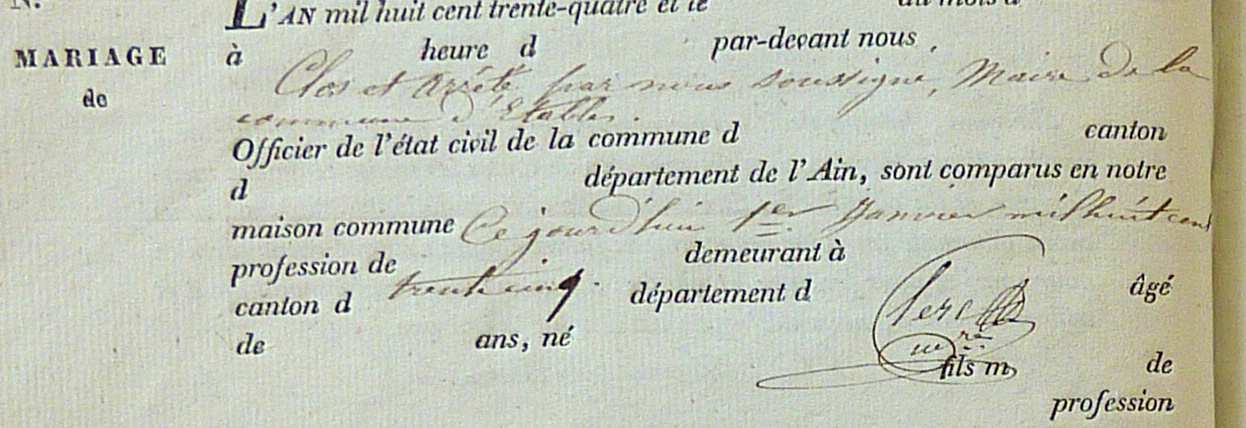 N.
L'AN mil huit cent trente-quatre et le du mois d
MARIAGE
de
à heure d par-devant nous,
Clos et arrêté par nous soussigné, Maire de la
commune d'Etables.
Officier de l'état civil de la commune d canton
d département de l'Ain, sont comparus en notre
maison commune Ce jourd'hui 1er Janvier mil huit cent
profession de demeurant à
trente cinq.
canton d département d âgé
de ans, né
mre
fils m de
profession